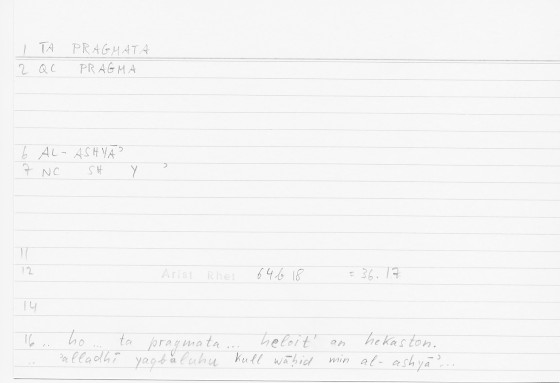 1 TA PRAGMATA
2 QC PRAGMA
6 AL-ASHYĀʾ
7 NC SH Y ʾ
11
12 Arist Rhet 64b18 = 36.17
14
16 .. ho .. ta pragmata ... heloit' an hekaston.
.. ʾalladhī yaqbaluhu kull wāḥid min al-ashyāʾ...